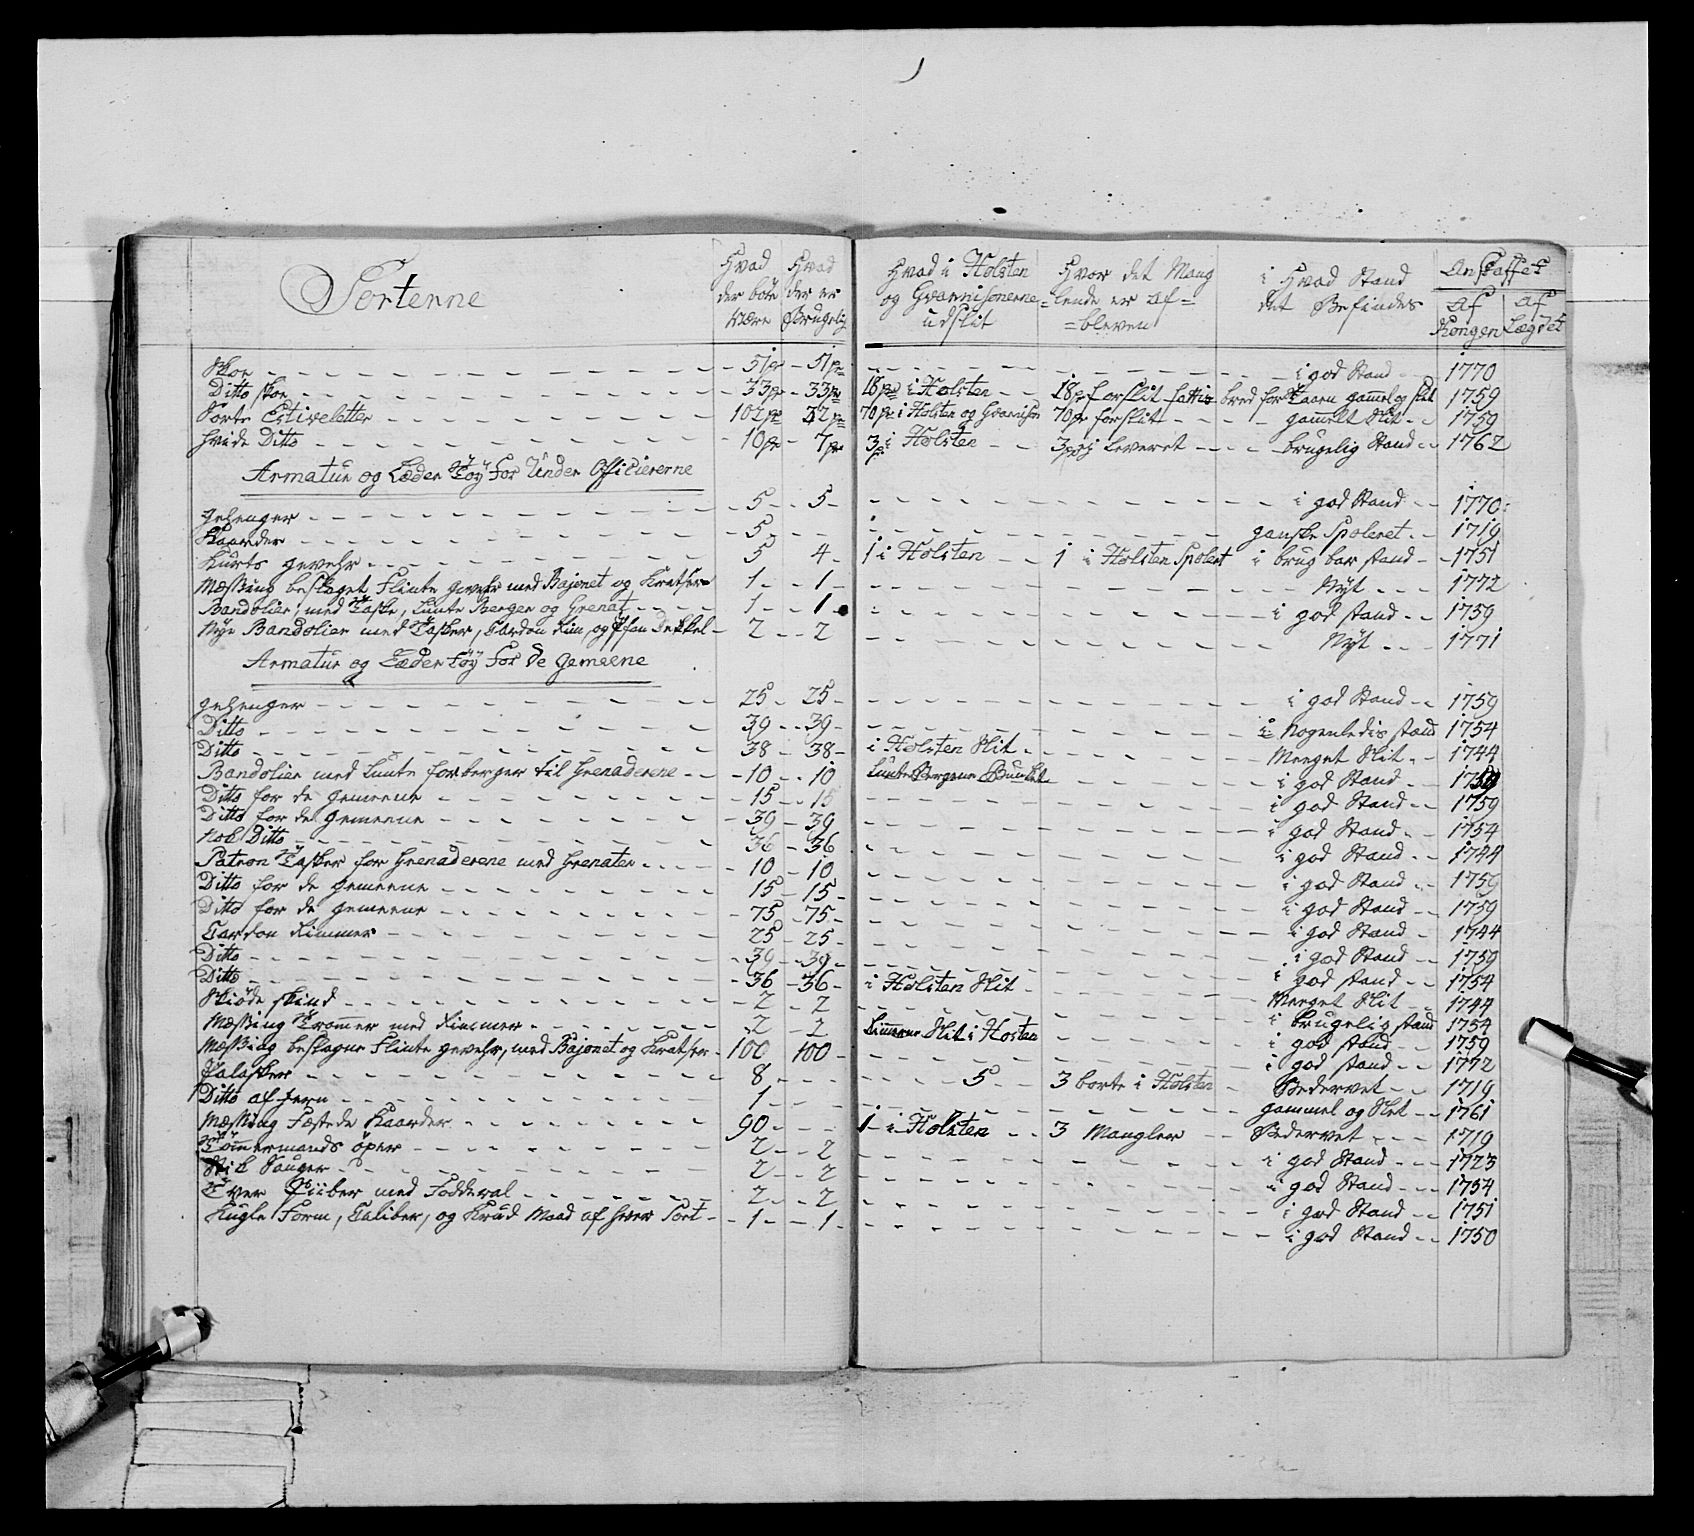 Sorterne | Hvad der bör være | Hvad der er Brugelig | Hvad i Holsten og Gvarnisonerne udslit | Hvor det Manglende er af=bleven | i Hvad Stand det Befindes | Anskaffet Af Kongen | Af Lægdet
Skoe 51 pr 51 pr i god Stand 1770
Ditto skoe 33 pr 33 pr 18 pr i Holsten 18 p forslit gammel og slit 1759
Sorte Stiveletter 102 pr 32 pr 70 pr i Holsten og Gvarnison 70 pr forslit gammelt Slit 1759
Hvide Ditto 10 pr 7 pr 3 p i Holsten 3 p ej Leveret brugelig Stand 1762
Armatur og Læder Töy for Under Officiererne
gehenger 5 5 i god Stand 1770
Kaarder 5 ganske Spoleret 1719
Kurts gevehr 5 4 1 i Holsten 1 i Holsten Spolert i brug bar stand 1751
Mæssing beslaget Flinte gevehr med Bajonet og Kratser 1 1 Nyt 1772
Bandolier, med Taske, Lunte Berger og Grenat 1 1 i god stand 1759
Nye Bandolier med Tasker, Cardon Rim, og Pfan Dekkel 2 2 Nyt 1771
Armatur og Læder töy for de gemeene
gehenger 25 25 i god Stand 1759
Ditto 39 39 i Nogenledis stand 1754
Ditto 38 38 i Holsten Slit Meeget Slit 1744
Bandolier med Lunte forberger til Grenaderene 10 10 i god Stand 1759
Ditto for de gemeene 15 15 i god Stand 1759
Ditto for de gemeene 39 39 i god Stand 1754
Nok Ditto 36 36 i god Stand 1744
Patron Tasker for Grenaderene med Grenater 10 10 i god Stand 1759
Ditto for de gemeene 15 15 i god Stand 1759
Ditto for de gemeene 75 75 i god Stand 1744
Cardon Rimmer 25 25 i god Stand 1759
Ditto 39 39 i god stand 1754
Ditto 36 36 i Holsten Slit Meeget Slit 1744
Skiöde skind 2 2 i brugelig stand 1754
Mæssing Trommer med Rimmer 2 2 Rimmerne Slit i Hosten i god stand 1759
Mæssing beslagne Flinte gevehr, med Bajonet og Kratser 100 100 i god stand 1772
Palasker 8 5 3 borte i Holsten Bedervet 1719
Ditto af Jern 1 gammel og Slet 1761
Mæssing Fæstede Kaarder 90 1 i Holsten 3 Mangler Bedervet 1719
Tömmermands öxer 2 2 i god Stand 1723
2 2 i god Stand 1754
Tver Piiber med Fodderal 2 2 i god Stand 1751
Kugle Form, Caliber, og Krud Maad af hver Sort 1 1 i god Stand 1750